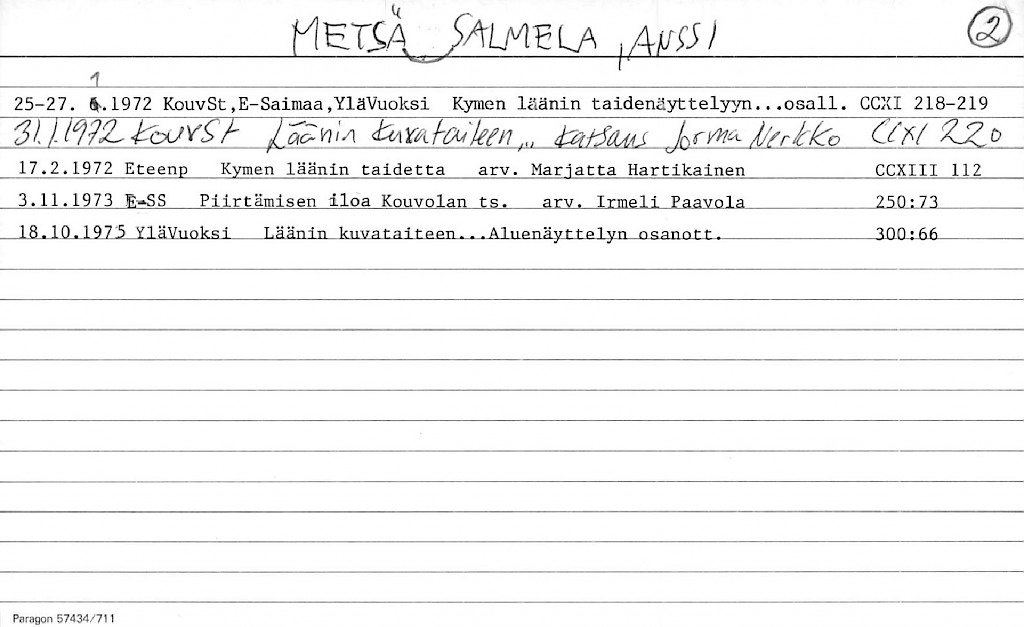 METSÄ SALMELA, ANSSI 2
1
25-27. 6.1972 KouvSt,E-Saimaa,YläVuoksi Kymen läänin taidenäyttelyyn...osall. CCXI 218-219
31.1.1972 KouvSt Läänin kuvataiteen... katsaus Jorma Nerkko CCXI 220
17.2.1972 Eteenp Kymen läänin taidetta arv. Marjatta Hartikainen CCXIII 112
3.11.1973 E-SS Piirtämisen iloa Kouvolan ts. arv. Irmeli Paavola 250:73
18.10.1975 YläVuoksi Läänin kuvataiteen...Aluenäyttelyn osanott. 300:66
Paragon 57434/711